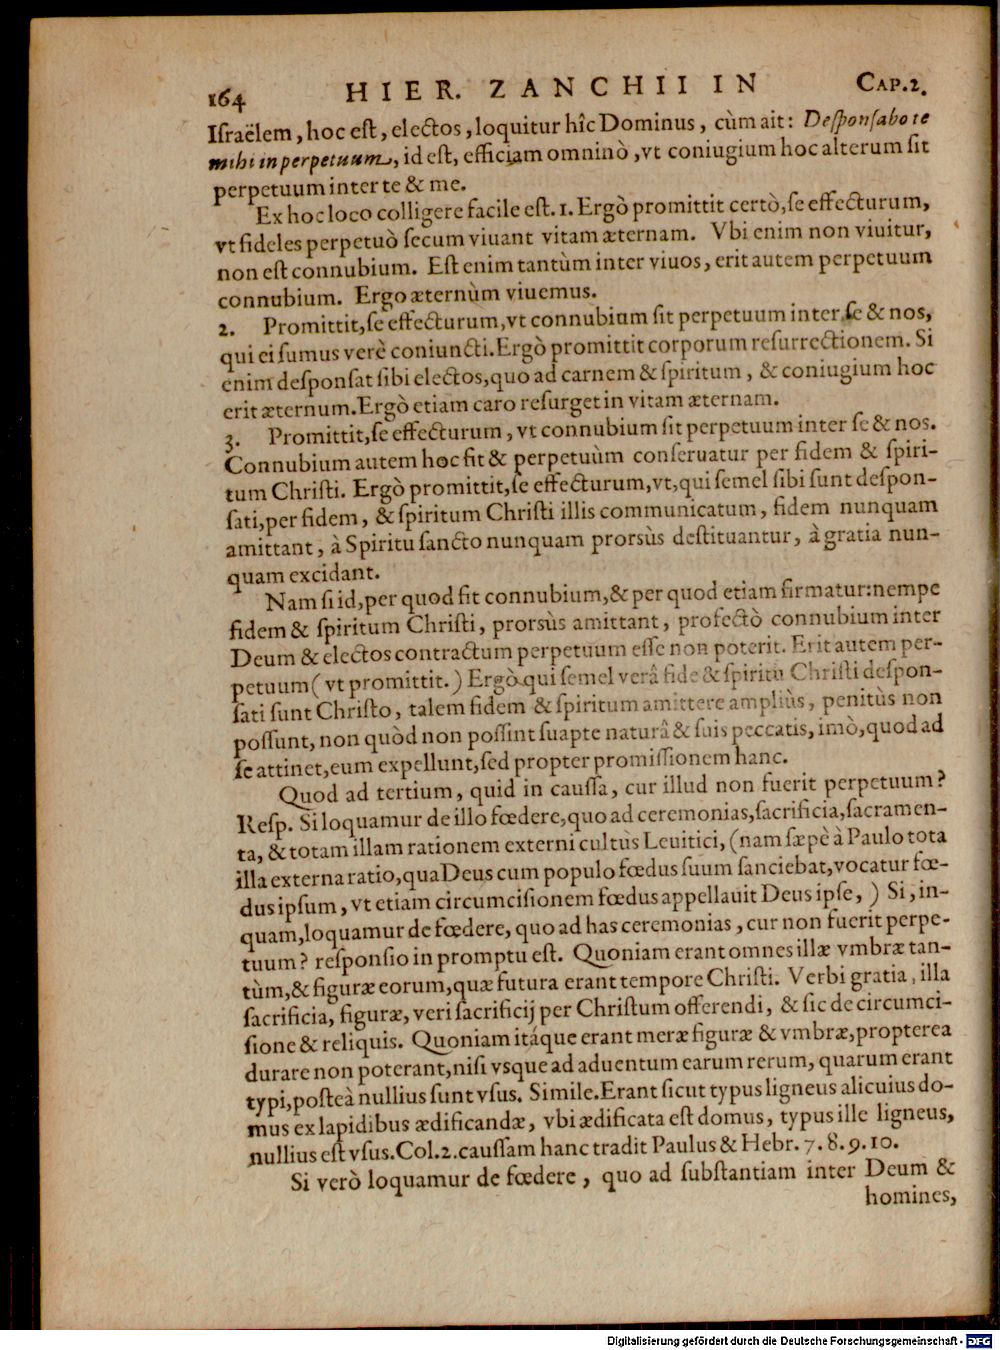 164 HIER. ZANCHII IN CAP.2.
Iſraëlem, hoc eſt, electos, loquitur hîc Dominus, cùm ait: Deſponſabo te
mihi in perpetuum, id eſt, efficiam omninò, vt coniugium hoc alterum ſit
perpetuum inter te & me.
Ex hoc loco colligere facile eſt. 1. Ergò promittit certò, ſe effecturum,
vt fideles perpetuò ſecum viuant vitam æternam. Vbi enim non viuitur,
non eſt connubium. Eſt enim tantùm inter viuos, erit autem perpetuum
connubium. Ergo æternùm viuemus.
2. Promittit, ſe effecturum, vt connubium ſit perpetuum inter ſe & nos,
qui ei ſumus verè coniuncti. Ergò promittit corporum reſurrectionem. Si
enim deſponſat ſibi electos, quo ad carnem & ſpiritum, & coniugium hoc
erit æternum. Ergò etiam caro reſurget in vitam æternam.
3. Promittit, ſe effecturum, vt connubium ſit perpetuum inter ſe & nos.
Connubium autem hoc fit & perpetuùm conſeruatur per fidem & ſpiri-
tum Chriſti. Ergò promittit, ſe effecturum, vt, qui ſemel ſibi ſunt deſpon-
ſati, per fidem, & ſpiritum Chriſti illis communicatum, fidem nunquam
amittant, à Spiritu ſancto nunquam prorsùs deſtituantur, à gratia nun-
quam excidant.
Nam ſi id, per quod fit connubium, & per quod etiam firmatur: nempe
fidem & ſpiritum Chriſti, prorsùs amittant, profectò connubium inter
Deum & electos contractum perpetuum eſſe non poterit. Erit autem per-
petuum (vt promittit.) Ergò qui ſemel verâ fide & ſpiritu Chriſti deſpon-
ſati ſunt Chriſto, talem fidem & ſpiritum amittere ampliùs, penitùs non
poſſunt, non quòd non poſſint ſuapte naturâ & ſuis peccatis, imò, quod ad
ſe attinet, eum expellunt, ſed propter promiſſionem hanc.
Quod ad tertium, quid in cauſſa, cur illud non fuerit perpetuum?
Reſp. Si loquamur de illo fœdere, quo ad ceremonias, ſacrificia, ſacramen-
ta, & totam illam rationem externi cultùs Leuitici, (nam ſæpè à Paulo tota
illa externa ratio, qua Deus cum populo fœdus ſuum ſanciebat, vocatur fœ-
dus ipſum, vt etiam circumciſionem fœdus appellauit Deus ipſe,) Si, in-
quam, loquamur de fœdere, quo ad has ceremonias, cur non fuerit perpe-
tuum? reſponſio in promptu eſt. Quoniam erant omnes illæ vmbræ tan-
tùm, & figuræ eorum, quæ futura erant tempore Chriſti. Verbi gratia, illa
ſacrificia, figuræ, veri ſacrificij per Chriſtum offerendi, & ſic de circumci-
ſione & reliquis. Quoniam itáque erant meræ figuræ & vmbræ, propterea
durare non poterant, niſi vsque ad aduentum earum rerum, quarum erant
typi, poſteà nullius ſunt vſus. Simile. Erant ſicut typus ligneus alicuius do-
mus ex lapidibus ædificandæ, vbi ædificata eſt domus, typus ille ligneus,
nullius eſt vſus. Col. 2. cauſſam hanc tradit Paulus & Hebr. 7. 8. 9. 10.
Si verò loquamur de fœdere, quo ad ſubſtantiam inter Deum &
homines,
Digitalisierung gefördert durch die Deutsche Forschungsgemeinschaft - DFG